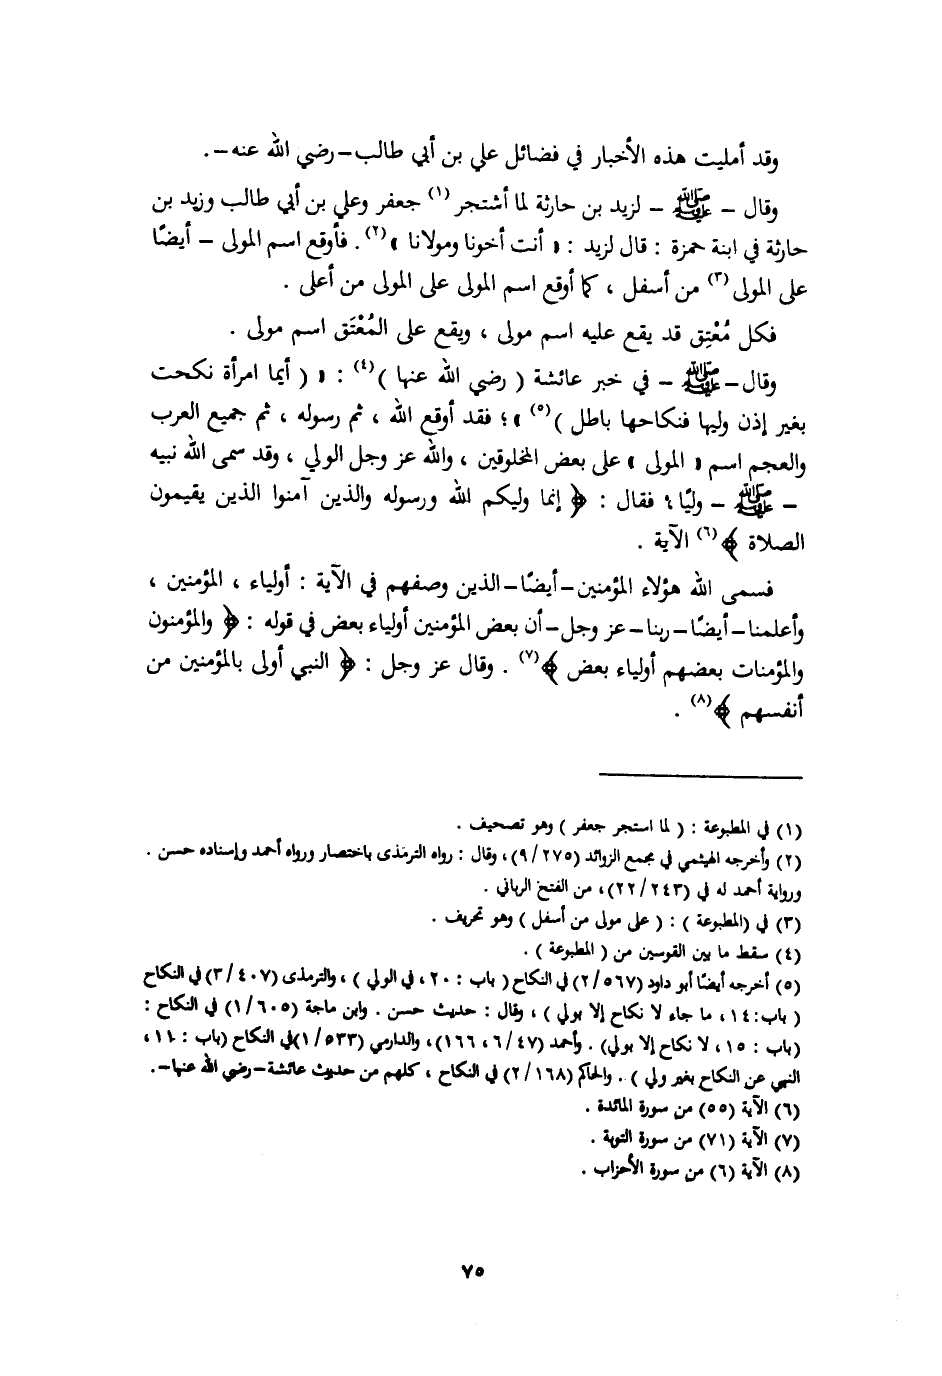 وقد أمليت هذه الأخبار في فضائل علي بن أبي طالب–رضي الله عنه–.
وقال – ﷺ – لزيد بن حارثة لما أشتجر (١) جعفر وعلي بن أبي طالب وزيد بن
حارثة في ابنة حمزة : قال لزيد : « أنت أخونا ومولانا » (٢) . فأوقع اسم المولى – أيضًا
على المولى (٣) من أسفل ، كما أوقع اسم المولى على المولى من أعلى .
فكل مُعْتِق قد يقع عليه اسم مولى ، ويقع على المُعْتَق اسم مولى .
وقال– ﷺ – في خبر عائشة ( رضي الله عنها ) (٤) : « ( أيما امرأة نكحت
بغير إذن وليها فنكاحها باطل ) (٥) » ؛ فقد أوقع الله ، ثم رسوله ، ثم جميع العرب
والعجم اسم « المولى » على بعض المخلوقين ، والله عز وجل الولي ، وقد سمى الله نبيه
– ﷺ – وليًا ؛ فقال : ﴿ إنما وليكم الله ورسوله والذين آمنوا الذين يقيمون
الصلاة ﴾ (٦) الآية .
فسمى الله هؤلاء المؤمنين–أيضًا–الذين وصفهم في الآية : أولياء ، المؤمنين ،
وأعلمنا–أيضًا–ربنا–عز وجل–أن بعض المؤمنين أولياء بعض في قوله : ﴿ والمؤمنون
والمؤمنات بعضهم أولياء بعض ﴾ (٧) . وقال عز وجل : ﴿ النبي أولى بالمؤمنين من
أنفسهم ﴾ (٨) .
(١) في المطبوعة : ( لما استجر جعفر ) وهو تصحيف .
(٢) وأخرجه الهيثمي في مجمع الزوائد (٩/٢٧٥) ، وقال : رواه الترمذى باختصار ورواه أحمد وإسناده حسن .
ورواية أحمد له في (٢٢/٢٤٣) ، من الفتح الرباني .
(٣) في (المطبوعة ) : ( على مولى من أسفل ) وهو تحريف .
(٤) سقط ما بين القوسين من ( المطبوعة ) .
(٥) أخرجه أيضًا أبو داود (٢/٥٦٧) في النكاح ( باب : ٢٠ ، في الولي ) ، والترمذى (٣/٤٠٧) في النكاح
( باب:١٤ ، ما جاء لا نكاح إلا بولي ) ، وقال : حديث حسن . وابن ماجة (١/٦٠٥) في النكاح :
(باب : ١٥ ، لا نكاح إلا بولي) . وأحمد (٦/٤٧ ، ١٦٦) ، والدارمي (١/٥٣٣)في النكاح (باب : ١١ ،
النهي عن النكاح بغير ولي ) . والحاكم (٢/١٦٨) في النكاح ، كلهم من حديث عائشة–رضي الله عنها–.
(٦) الآية (٥٥) من سورة المائدة .
(٧) الآية (٧١) من سورة التوبة .
(٨) الآية (٦) من سورة الأحزاب .
٧٥